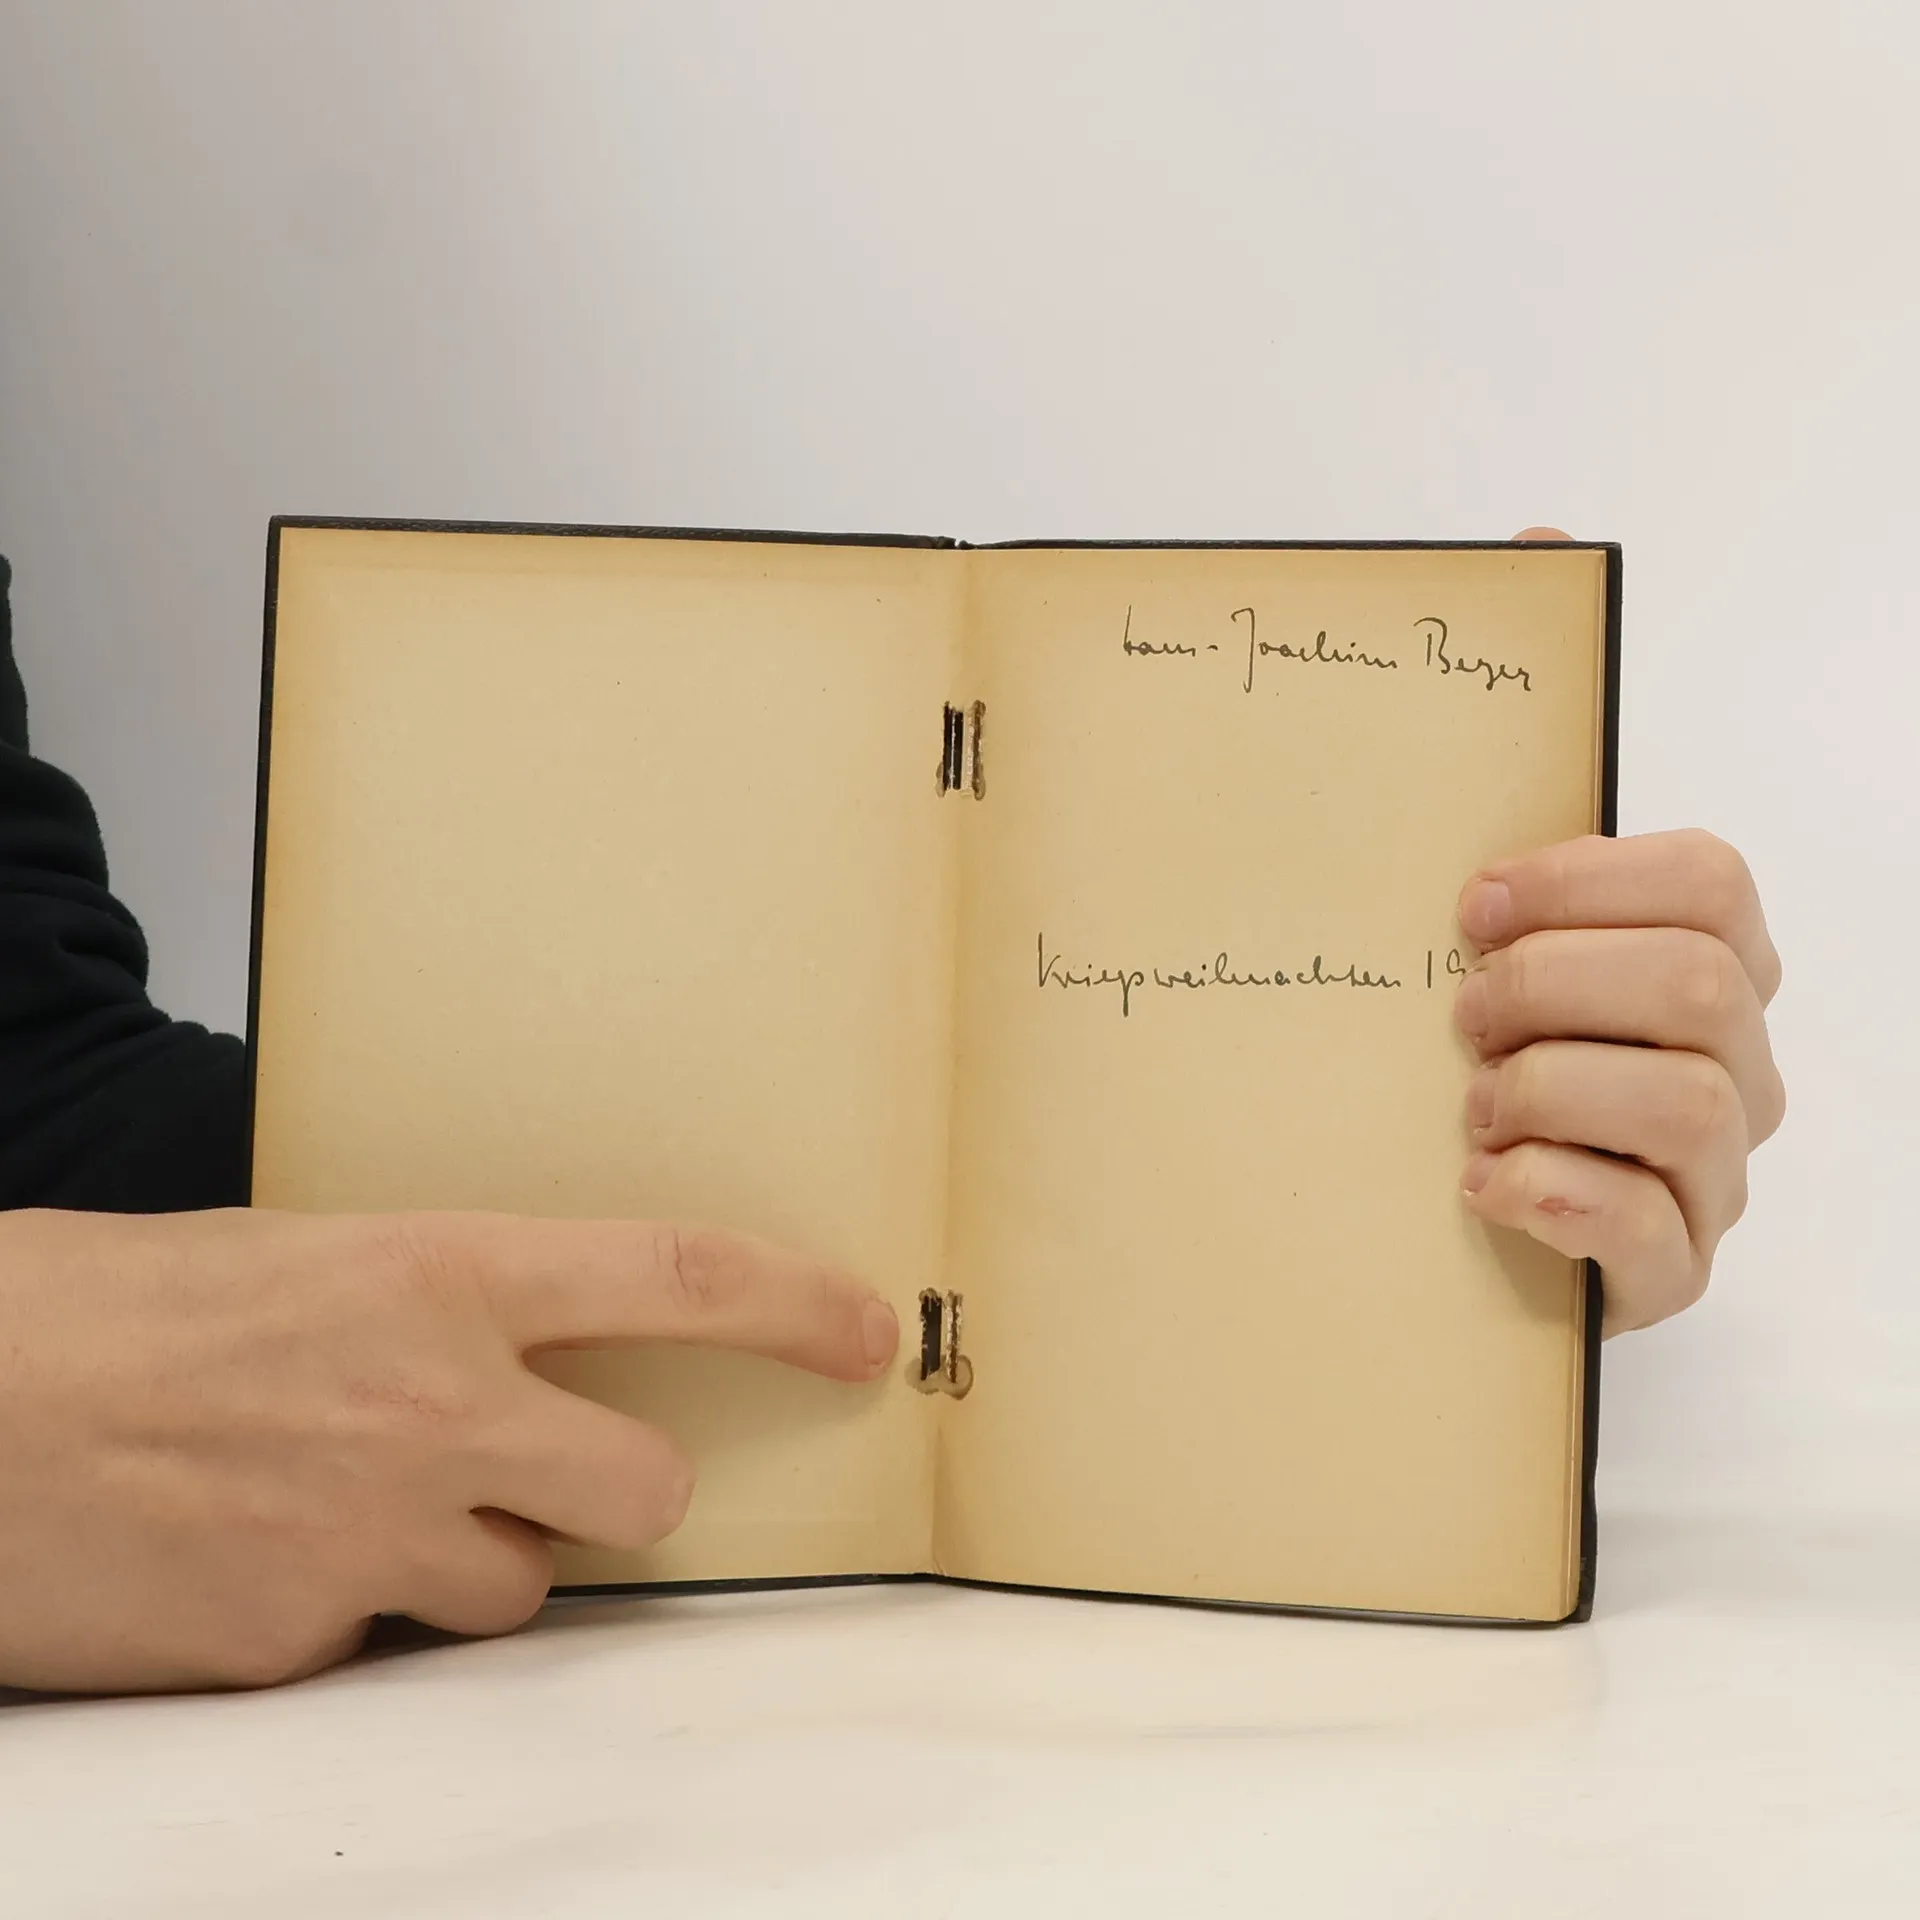 Hans-Joachim Beyer
Kriegsweihnachten 19